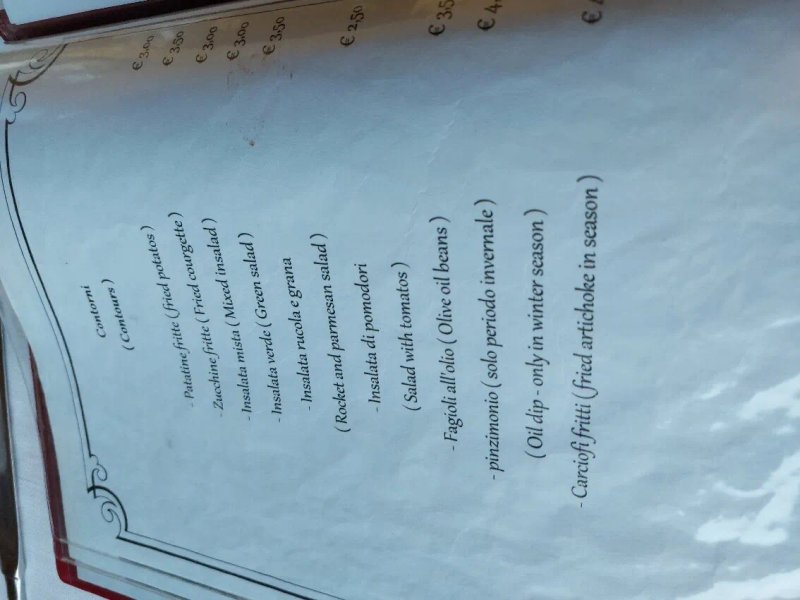 Contorni
( Contours )
- Patatine fritte ( fried potatos ) € 3,00
- Zucchine fritte ( Fried courgette ) € 3,50
- Insalata mista ( Mixed insalad ) € 3,00
- Insalata verde ( Green salad ) € 3,00
- Insalata rucola e grana € 3,50
( Rocket and parmesan salad )
- Insalata di pomodori € 2,50
( Salad with tomatos )
- Fagioli all'olio ( Olive oil beans ) € 3,5
- pinzimonio ( solo periodo invernale ) € 4,
( Oil dip - only in winter season )
- Carciofi fritti ( fried artichoke in season ) €